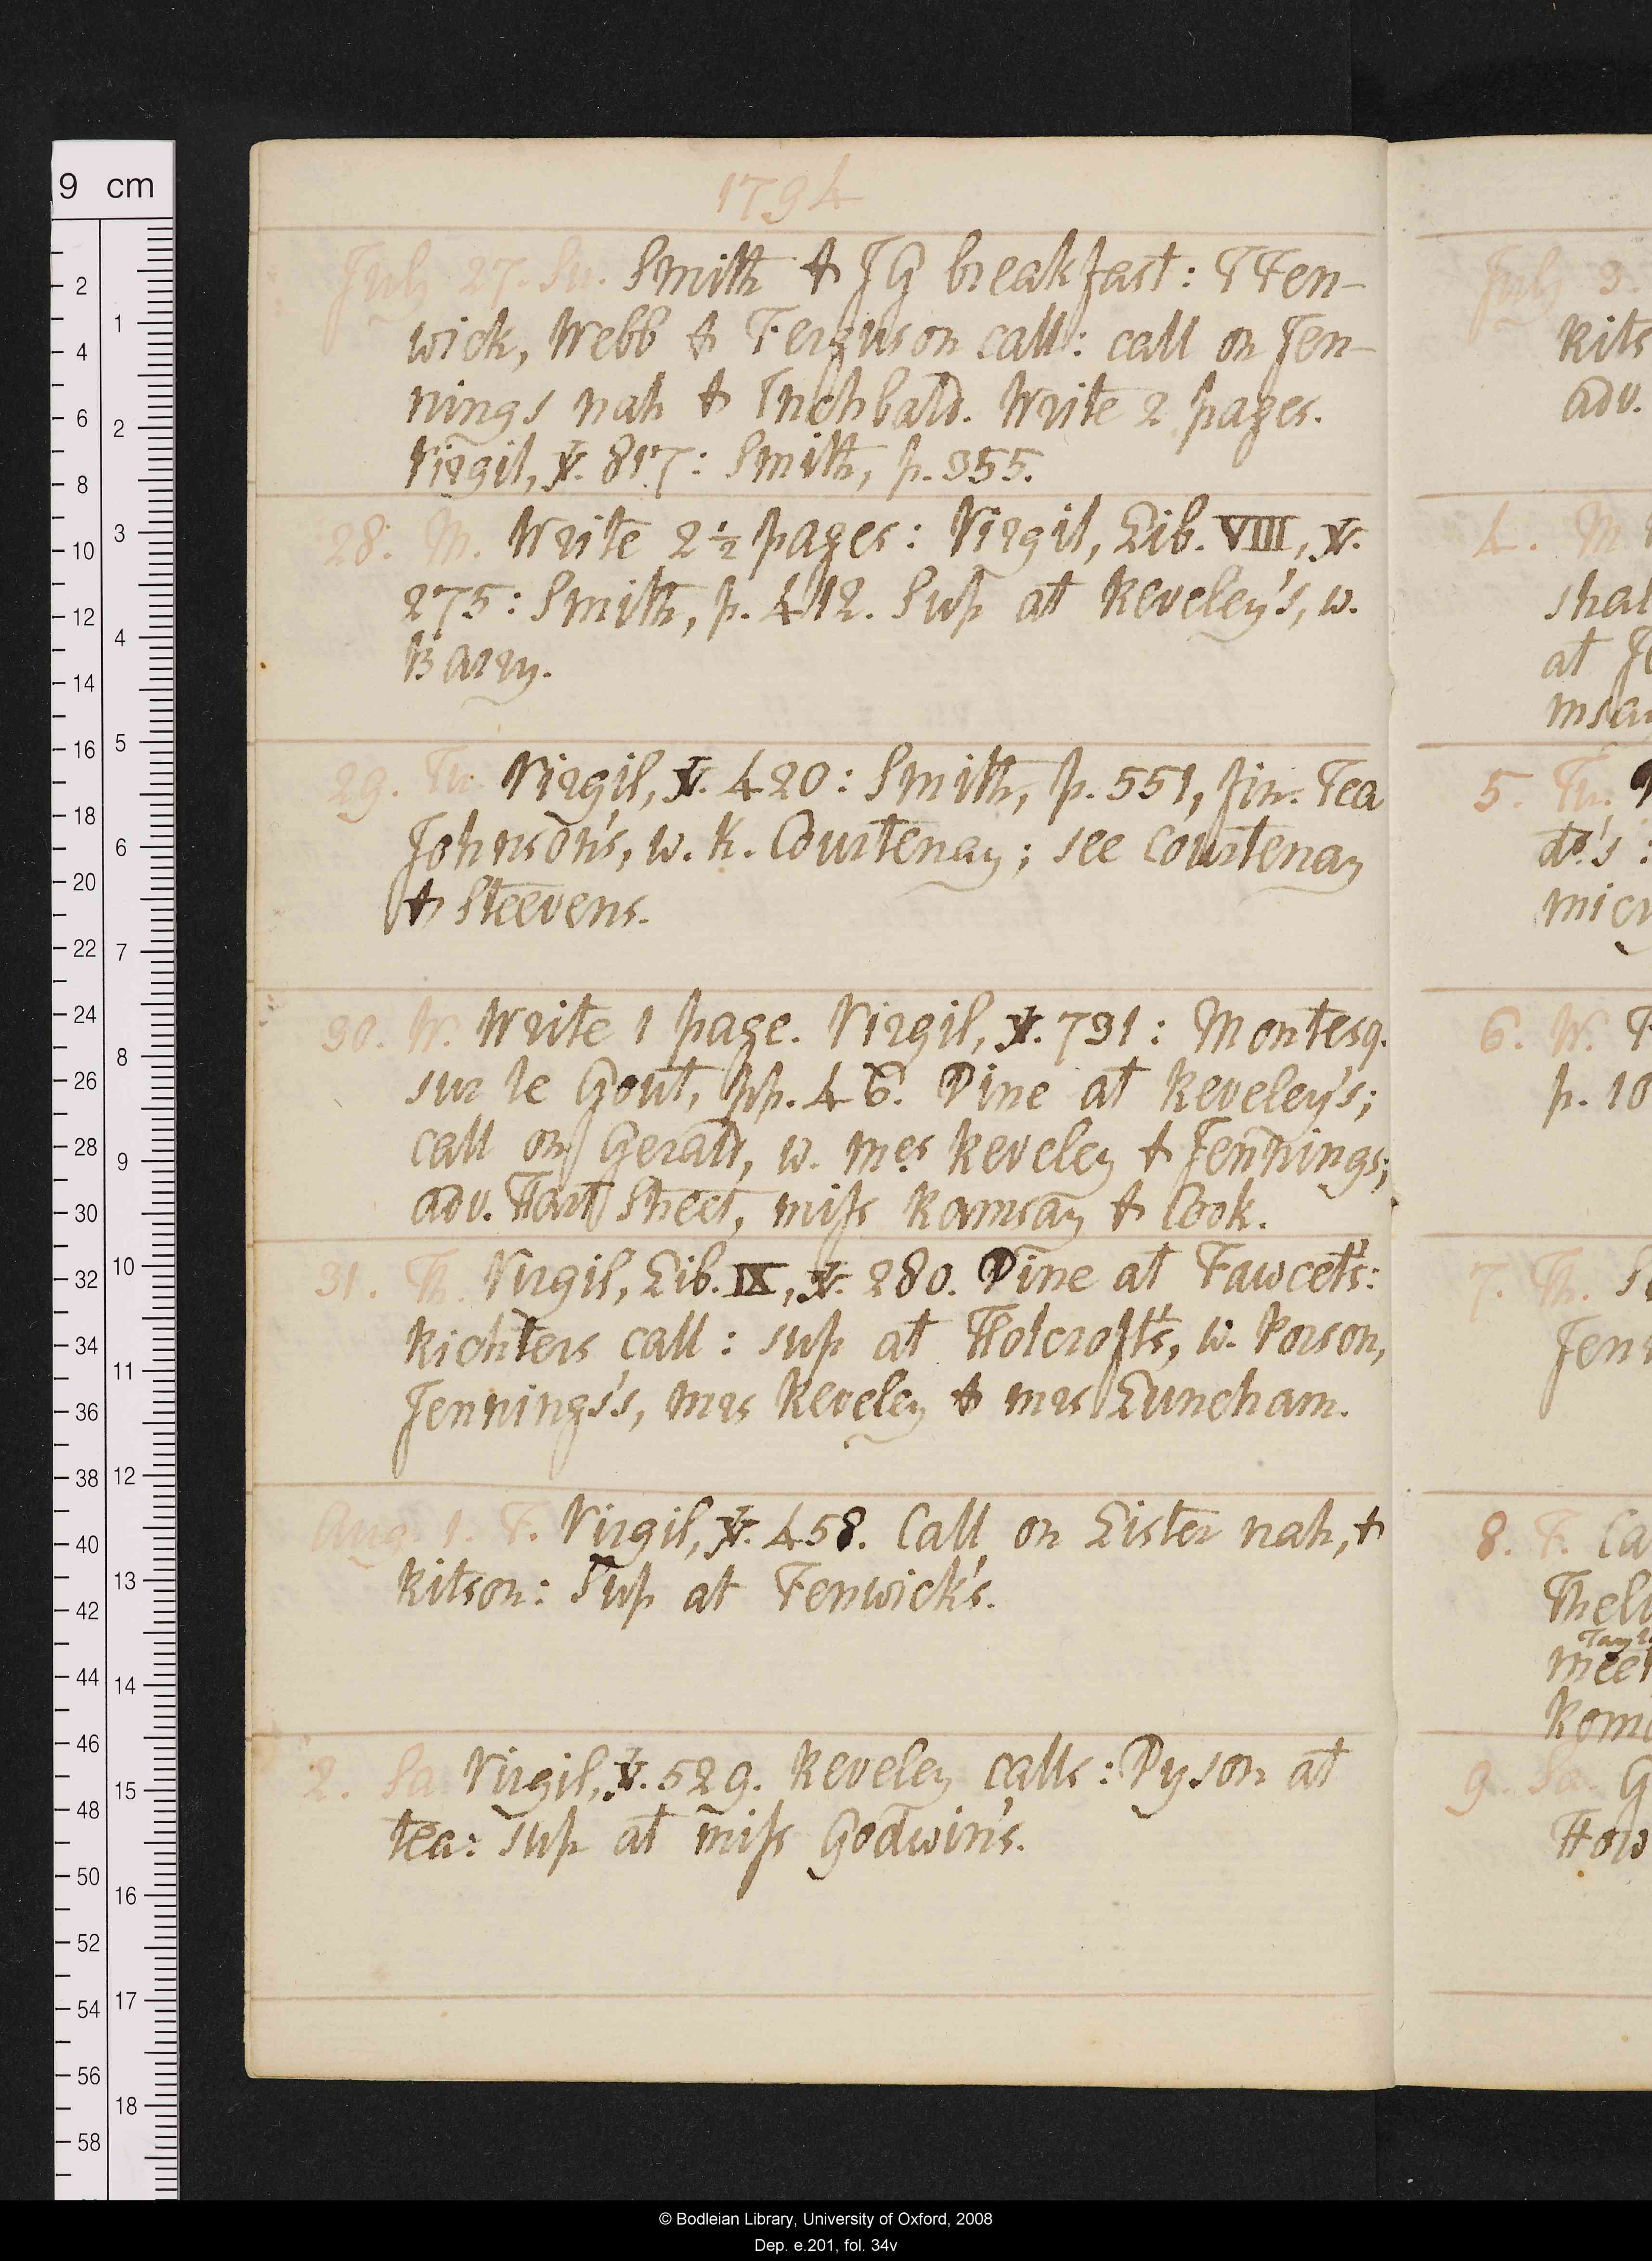 1794
July 27. Su. Smith & JG breakfast: TFen-
wick, Webb & Ferguson call: call on Jen-
nings nah & Inchbald. Write 2 pages.
Virgil, ℣. 817: Smith, p. 355.
28. M. Write 2½ pages: Virgil, Lib. VIII, ℣.
275: Smith, p. 412. Sup at Reveley's, w.
Barry.
29. Tu. Virgil, ℣. 420: Smith, p. 551, fin. Tea
Johnson's, w. K. Courtenay; see Courtenay
& Steevens.
30. W. Write 1 page. Virgil, ℣. 731: Montesq.
sur le Gout, pp. 46. Dine at Reveley's;
call on Gerald, w. mrs Reveley & Jennings;
adv. Hart Street, miss Ramsay & Cook.
31. Th. Virgil, Lib. IX, ℣. 280. Dine at Fawcet's:
Richters call: sup at Holcroft's, w. Porson,
Jennings's, mrs Reveley & mrs Luneham.
Aug. 1. F. Virgil, ℣. 458. Call on Lister nah, &
Ritson: Sup at Fenwick's.
2. Sa. Virgil, ℣. 529. Reveley calls: Dyson at
tea: sup at miss Godwin's.
July 3.
Rits
adv.
4. M
shal
at Je
msay
5. Tu.
do's :
micr
6. W.
p. 10
7. Th. S
Jen
8. F. Ca
Thelw
Tayl
meet
Roma
9. Sa. G
How
9 cm
2
4
6
8
10
12
14
16
18
20
22
24
26
28
30
32
34
36
38
40
42
44
46
48
50
52
54
56
58
1
2
3
4
5
6
7
8
9
10
11
12
13
14
15
16
17
18
© Bodleian Library, University of Oxford, 2008
Dep. e.201, fol. 34v